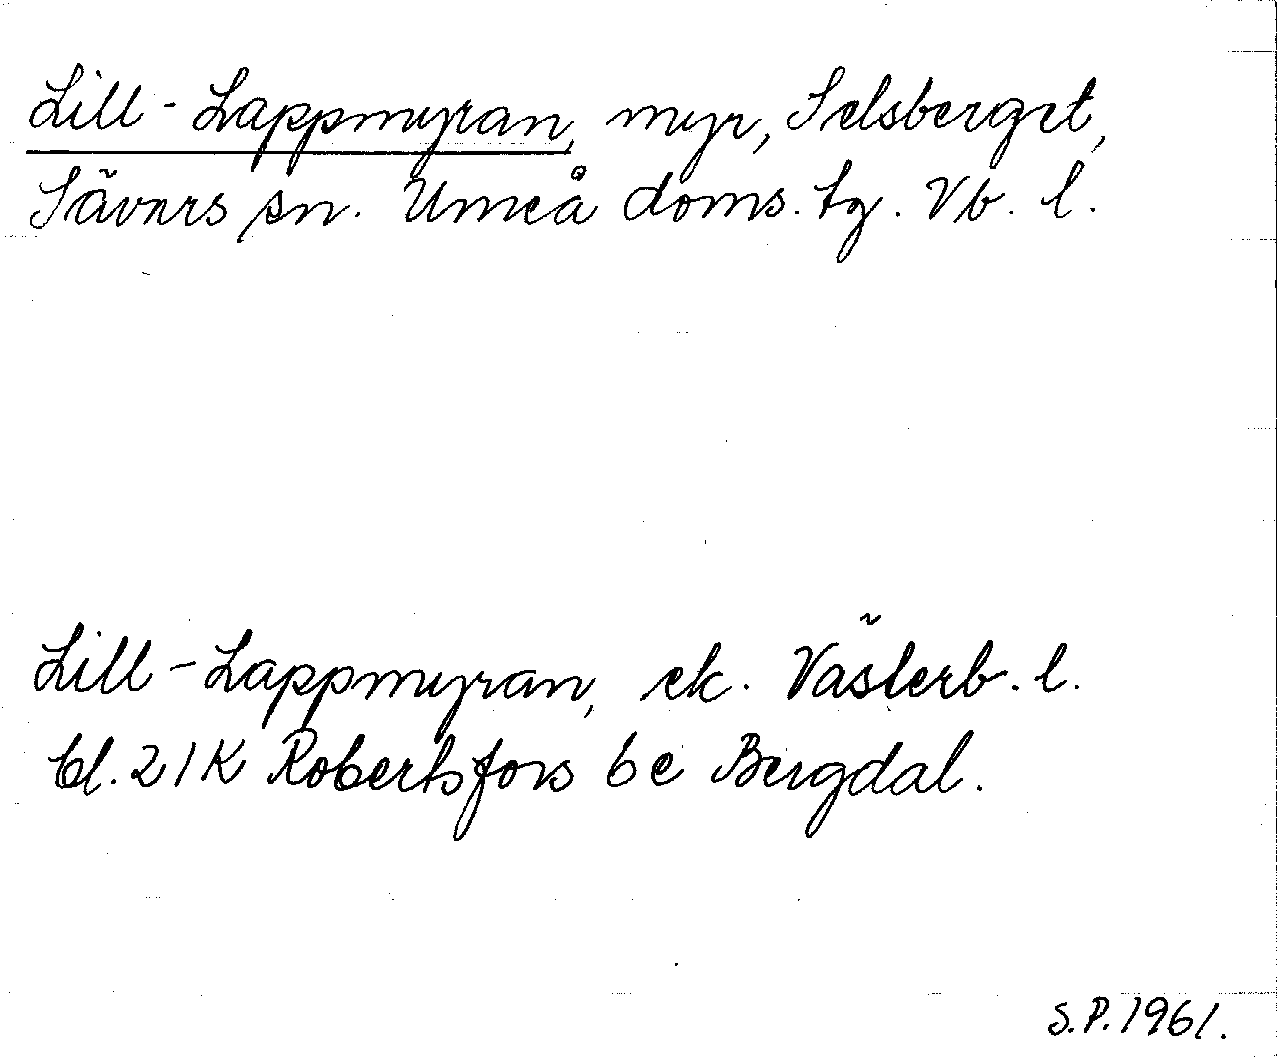 Lill-Lappmyran, myr, Selsberget,
Sävars sn. Umeå doms. tg. Vb. l.
Lill-Lappmyran, ek. Västerb. l.
bl. 21K Robertsfors 6e Bergdal.
S.P. 1961.